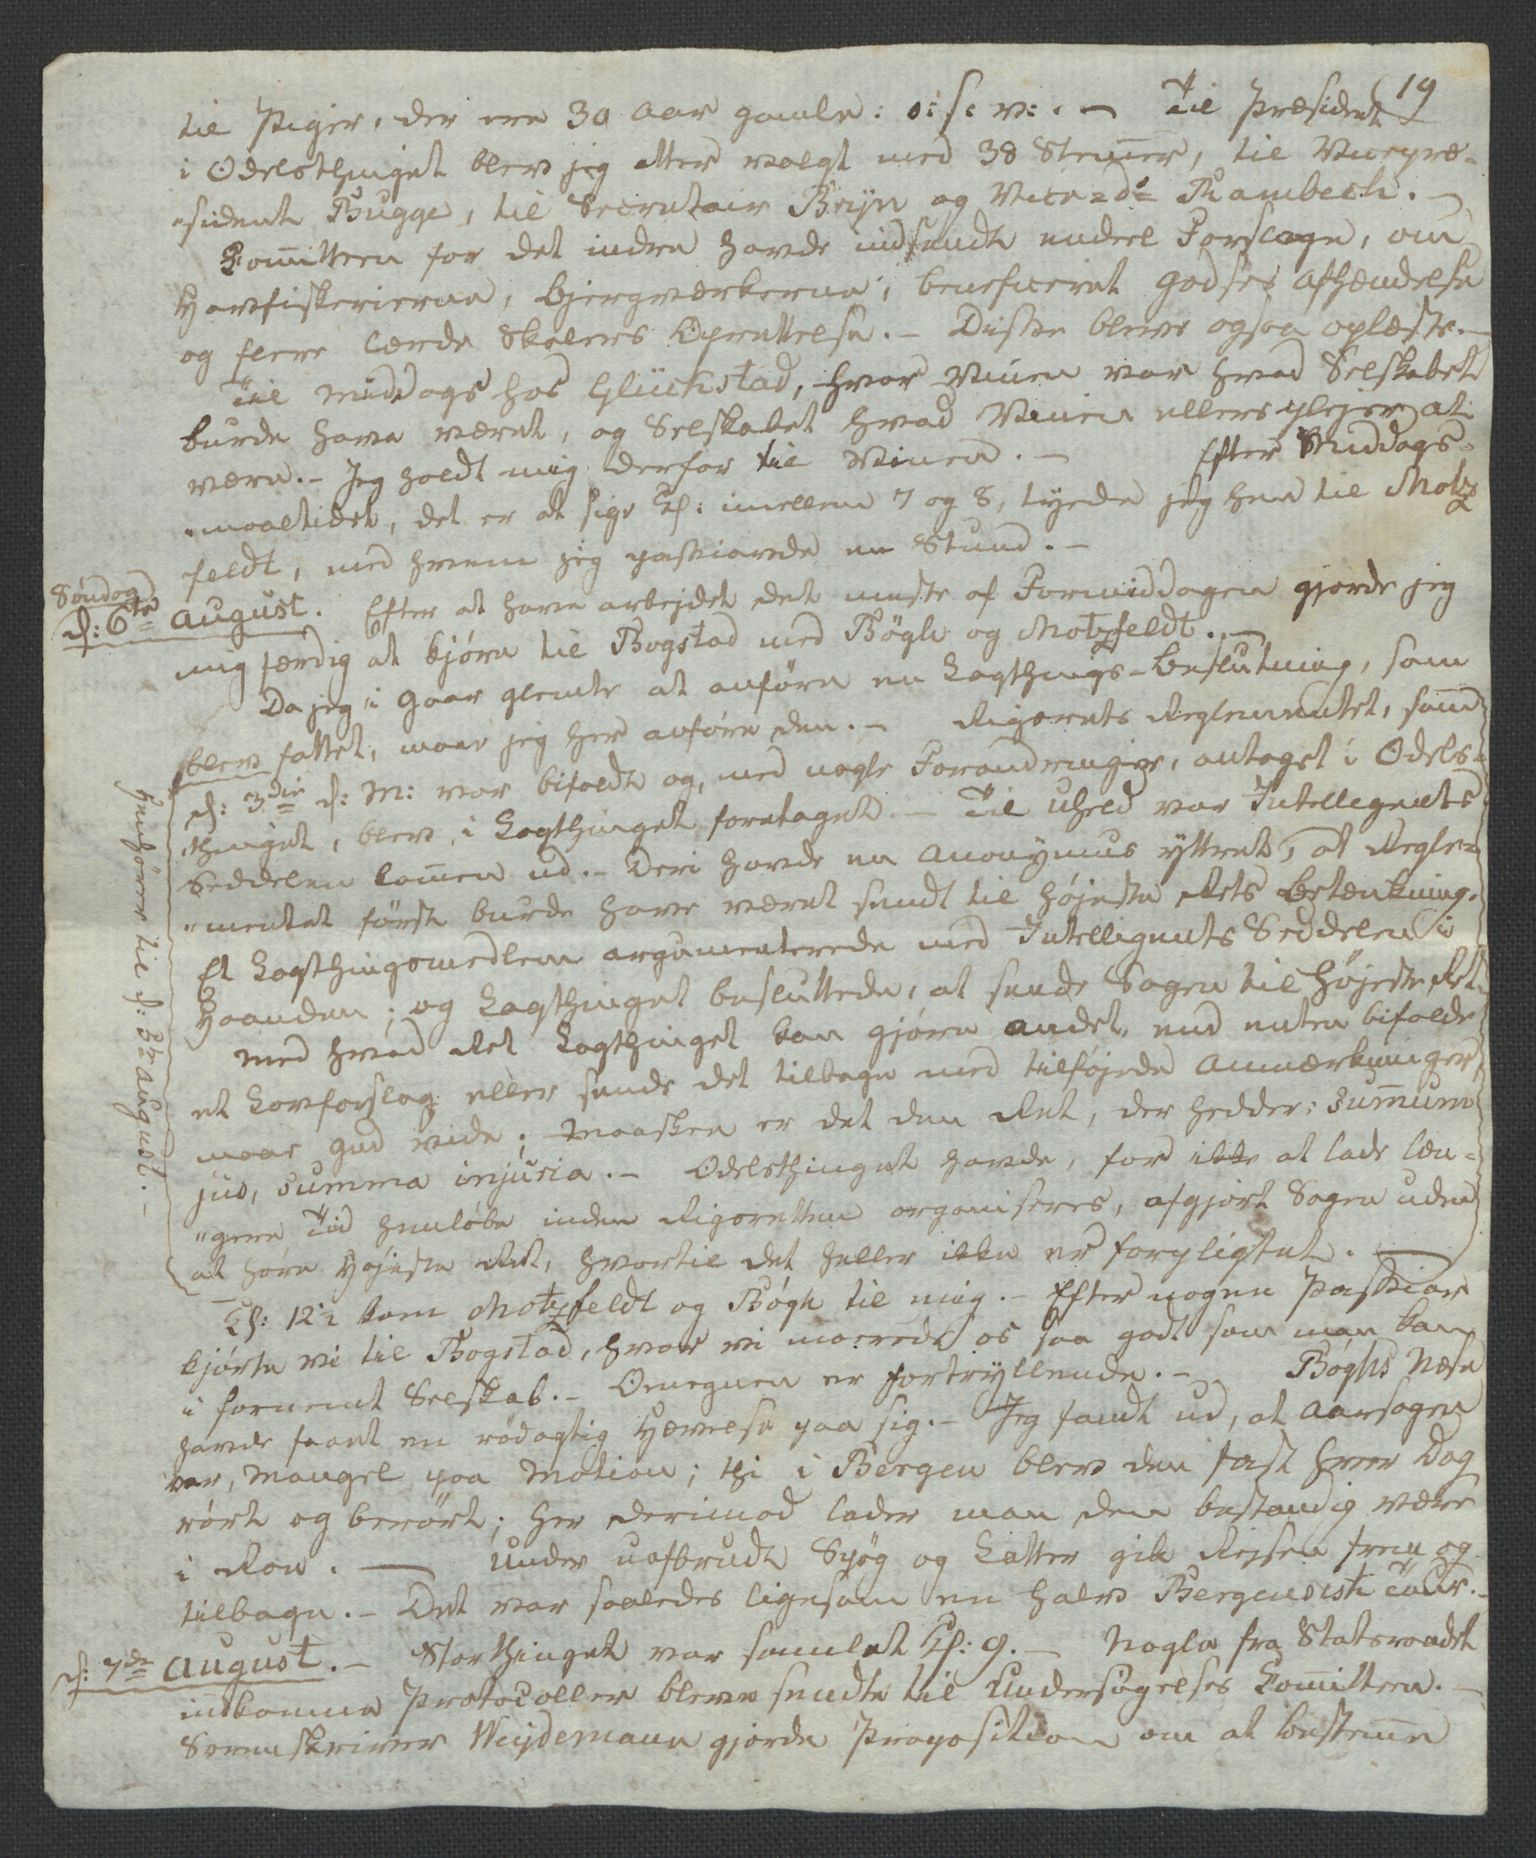 19
til Piger, der ere 30 Aar gamle: o: s: v: . — Til Præsident
i Odelsthinget blev jeg atter valgt med 38 Stemer, til Vicepræ-
„sident Bugge, til Secretair Bryn og Vice=do= Rambech. —
Comitteen for det indre havde indsendt endeel Forslage, om
Havfiskerierne, Bjergværkerne, beneficeret Godses Afhændelse
og flere Lærde Skolers Oprettelse. — Disse bleve ogsaa oplæste. —
Til Middags hos Glückstad, hvor Vinen var hvad Selskabet
burde have været, og Selskabet hvad Vinen ellers plejer at
være. — Jeg holdt mig derfor til Vinen. — Efter Middags-
„maaltidet, det er at sige Kl: imellem 7 og 8, tyede jeg hen til Motz
feldt, med hvem jeg passiarede en Stund. —
Søndag
d: 6te August. Efter at have arbejdet det meste af Formiddagen gjorde jeg
mig færdig at kjøre til Bogstad med Bøgh og Motzfeldt. —
Da jeg i Gaar glemte at anføre en Lagthings-Beslutning, som
blev fattet, maae jeg her anføre den. — Rigsrets Reglementet, som
d: 3die d: M: var bifaldt og, med nogle Forandringer, antaget i Odels-
thinget, blev i Lagthinget foretaget. — Til Uheld var Intelligents
Seddelen komen ud. — Deri havde en Anonymus yttret, at Regle-
„mentet først burde have været sendt til Højeste Rets Betænkning.
Et Lagthingsmedlem argumenterede med Intelligents Seddelen i
Haanden; og Lagthinget besluttede, at sende Sagen til Højeste Ret.
Med hvad Ret Lagthinget kan gjøre andet, end enten bifalde
et Lovforslag eller sende det tilbage med tilføjede Anmærkninger,
maae Gud vide; Maaskee er det den Ret, der hedder: Sumum
jus, summa injuria. — Odelsthinget havde, for ikke at lade læn-
„gere Tid henløbe inden Rigsretten organiseres, afgjort Sagen uden
at høre Højeste Ret, hvortil det heller ikke er forpligtet. —
Henhører til d: 5te August. —
Kl: 12½ kom Motzfeldt og Bøgh til mig. — Efter nogen Passiar
kjørte vi til Bogstad, hvor vi morede os saa godt som man kan
i fornemt Selskab. — Omegnen er fortryllende. — Bøghs Næse
havde faaet en rødagtig Hævelse paa sig. — Jeg fandt ud, at Aarsagen
var, Mangel paa Motion; thi i Bergen blev den fast hver Dag
rørt og berørt; her derimod lader man den bestandig være
i Roe. — Under uafbrudt Spøg og Latter gik Rejsen frem og
tilbage. — Det var saaledes ligesom en halv Bergensisk Tour. —
d: 7de August. — Storthinget var samlet Kl: 9. — Nogle fra Statsraadet
indkomne Protocoller bleve sendte til Undersøgelses Comitteen. —
Sorenskriver Weydemann gjorde Proposition om at bestemme